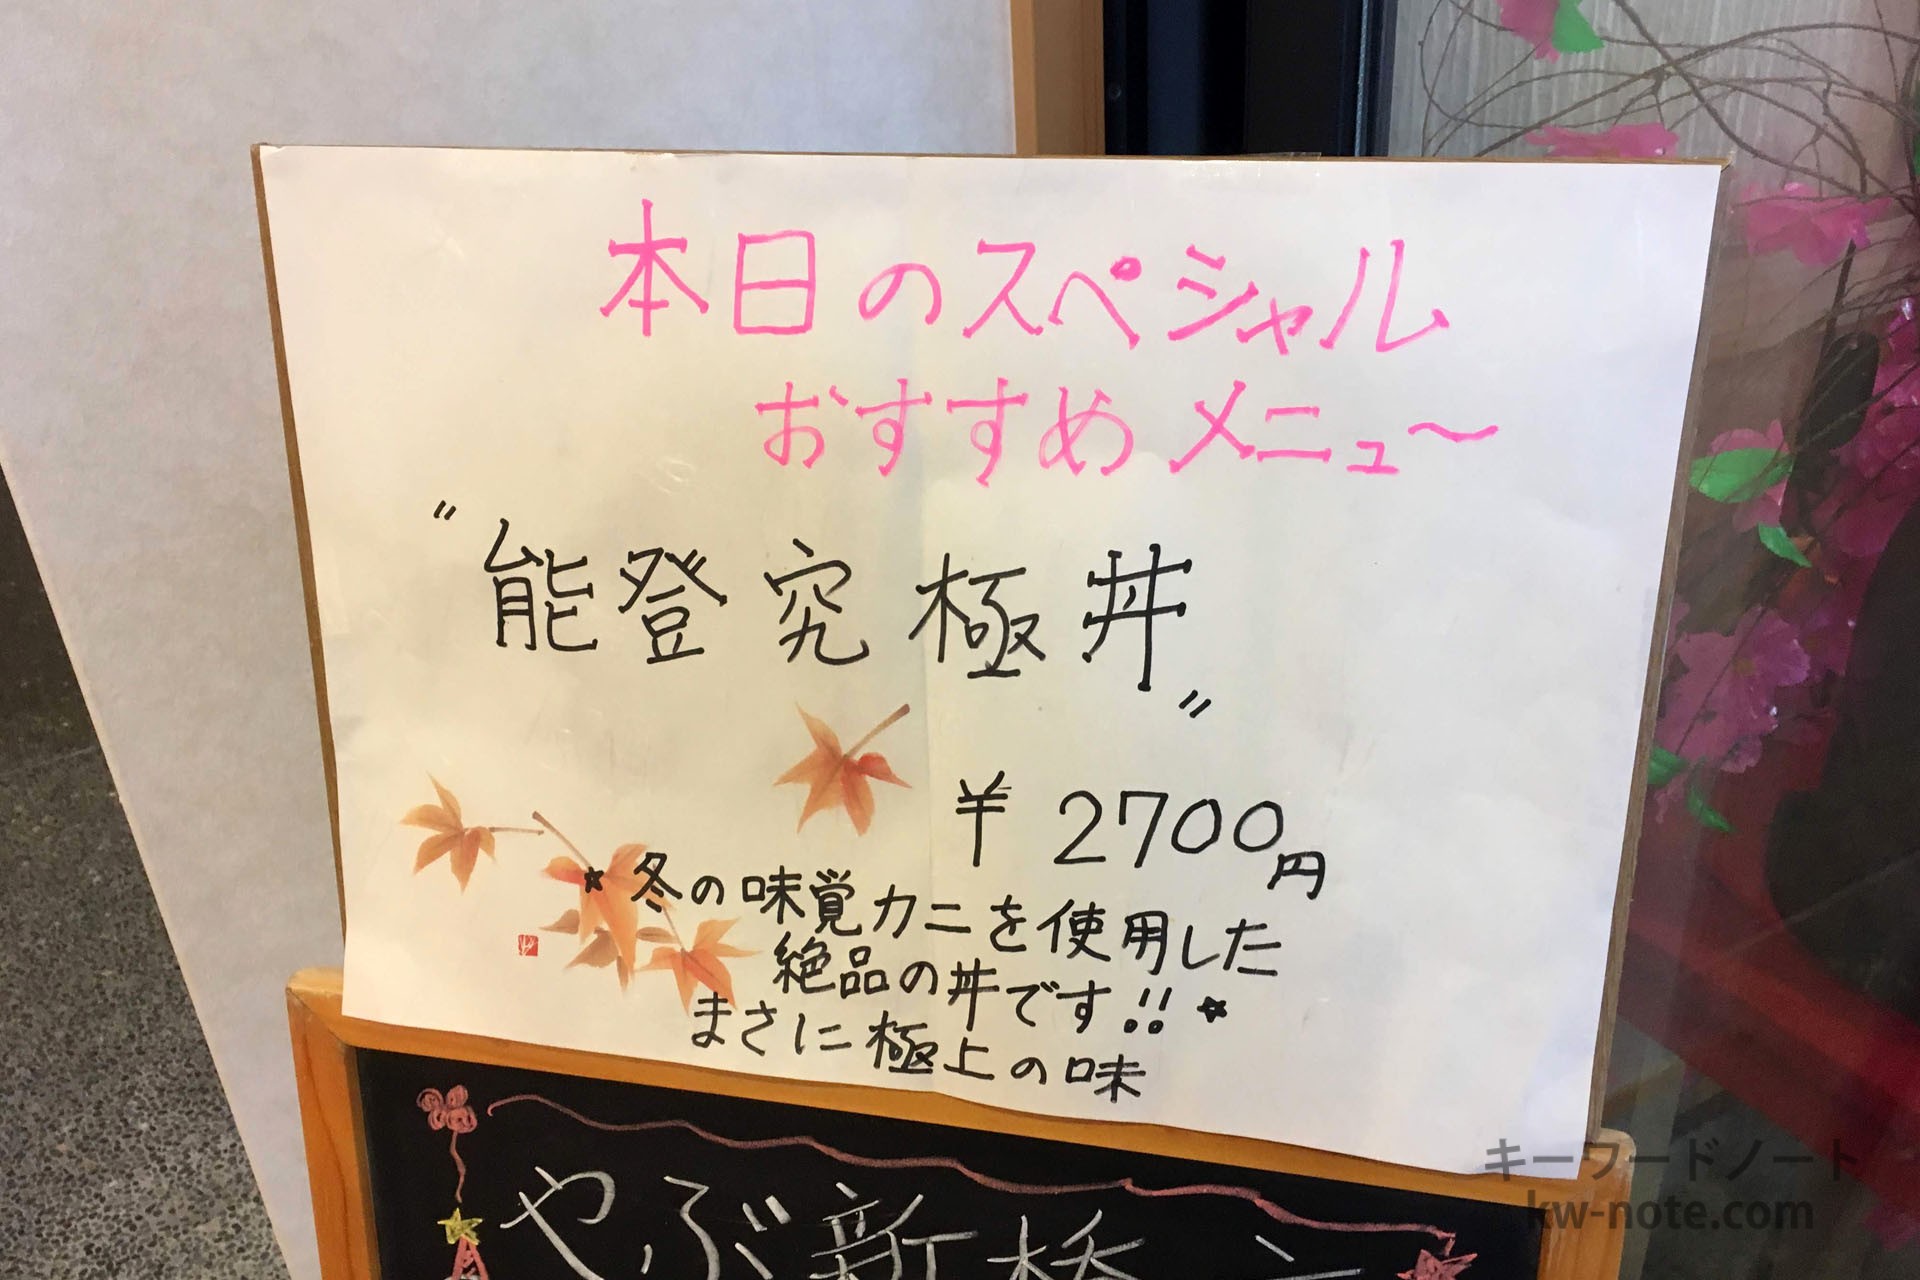 本日のスペシャル
おすすめメニュ〜
"能登究極丼"
¥2700円
★冬の味覚カニを使用した
絶品の丼です!!★
まさに極上の味
やぶ新橋
キーワードノート
kw-note.com